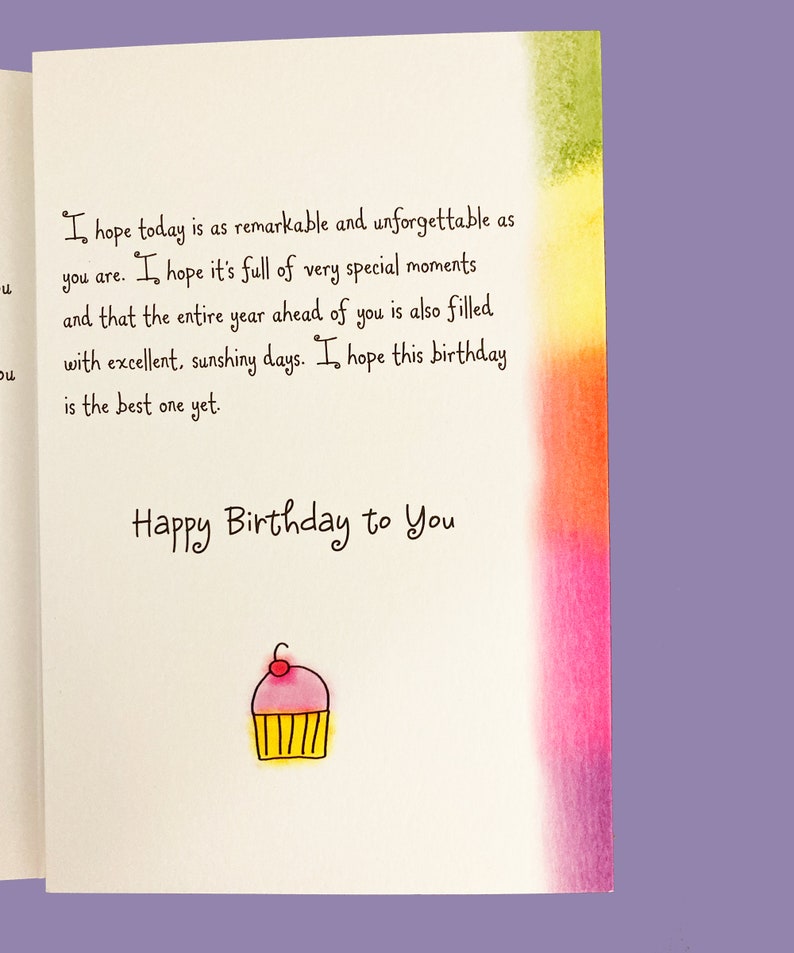 I hope today is as remarkable and unforgettable as
you are. I hope it's full of very special moments
and that the entire year ahead of you is also filled
with excellent, sunshiny days. I hope this birthday
is the best one yet.
Happy Birthday to You